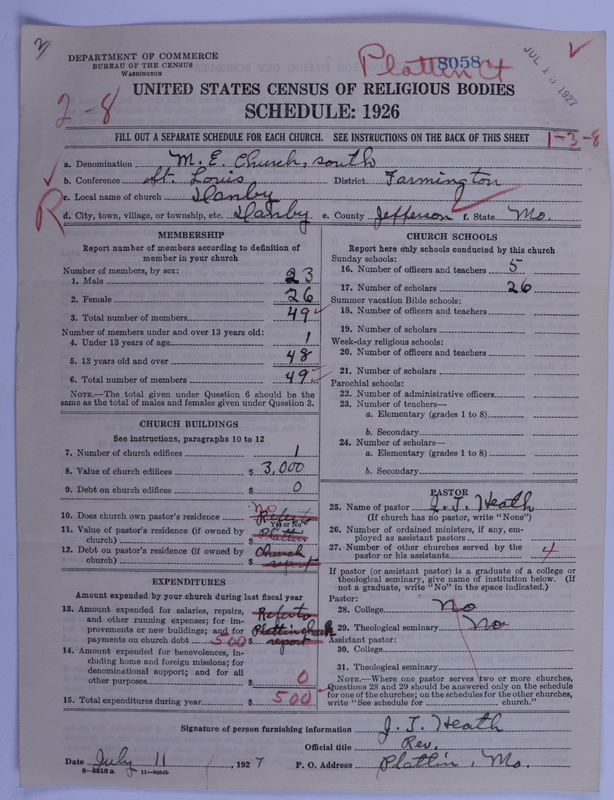 DEPARTMENT OF COMMERCE
BUREAU OF THE CENSUS
WASHINGTON
Plattin Ct
8058
JUL 1 1927
2-8
UNITED STATES CENSUS OF RELIGIOUS BODIES
SCHEDULE: 1926
FILL OUT A SEPARATE SCHEDULE FOR EACH CHURCH. SEE INSTRUCTIONS ON THE BACK OF THIS SHEET
1-3-8
a. Denomination M. E. Church, South
b. Conference St. Louis District Farmington
c. Local name of church Danby
R
d. City, town, village, or township, etc. Danby e. County Jefferson f. State Mo.
MEMBERSHIP
Report number of members according to definition of
member in your church
Number of members, by sex:
1. Male 23
2. Female 26
3. Total number of members 49
Number of members under and over 13 years old:
4. Under 13 years of age 1
5. 13 years old and over 48
6. Total number of members 49
NOTE.—The total given under Question 6 should be the
same as the total of males and females given under Question 3.
CHURCH BUILDINGS
See instructions, paragraphs 10 to 12
7. Number of church edifices 1
8. Value of church edifices $ 3,000
9. Debt on church edifices $ 0
10. Does church own pastor's residence no Refer to
Yes or No
11. Value of pastor's residence (if owned by
church) $ Plattin
12. Debt on pastor's residence (if owned by
church) $ Church report
EXPENDITURES
Amount expended by your church during last fiscal year
13. Amount expended for salaries, repairs,
and other running expenses; for im-
provements or new buildings; and for
payments on church debt 500 $ Refer to Plattin church report
14. Amount expended for benevolences, in-
cluding home and foreign missions; for
denominational support; and for all
other purposes $ 0
15. Total expenditures during year $ 500
CHURCH SCHOOLS
Report here only schools conducted by this church
Sunday schools:
16. Number of officers and teachers 5
17. Number of scholars 26
Summer vacation Bible schools:
18. Number of officers and teachers
19. Number of scholars
Week-day religious schools:
20. Number of officers and teachers
21. Number of scholars
Parochial schools:
22. Number of administrative officers
23. Number of teachers—
a. Elementary (grades 1 to 8)
b. Secondary
24. Number of scholars—
a. Elementary (grades 1 to 8)
b. Secondary
PASTOR
25. Name of pastor J. T. Heath
(If church has no pastor, write "None")
26. Number of ordained ministers, if any, em-
ployed as assistant pastors
27. Number of other churches served by the
pastor or his assistants 4
If pastor (or assistant pastor) is a graduate of a college or
theological seminary, give name of institution below. (If
not a graduate, write "No" in the space indicated.)
Pastor:
28. College No
29. Theological seminary No
Assistant pastor:
30. College
31. Theological seminary
NOTE.—Where one pastor serves two or more churches,
Questions 28 and 29 should be answered only on the schedule
for one of the churches; on the schedules for the other churches,
write "See schedule for church."
Signature of person furnishing information J. T. Heath
Official title Rev.
Date July 11, 1927 P. O. Address Plattin, Mo.